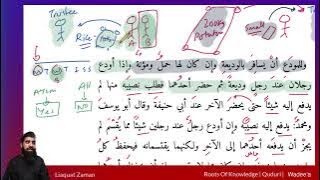 Trustee
Rice
A
B
200kg
Potatoes
Small
T I S S
ATM
Yes
All
NO
وللمودع أن يسافر بالوديعة وإن كان لها حمل ومؤنة وإذا أودع
رجلان عند رجل وديعة ثم حضر أحدهما فطلب نصيبه منها لم
يدفع إليه شيئا حتى يحضر الآخر عند أبي حنيفة وقال أبو يوسف
ومحمد: يدفع إليه نصيبه وإن أودع رجل عند رجلين شيئا مما يقسم لم
يجز أن يدفعه أحدهما إلى الآخر ولكنهما يقتسمانه فيحفظ كل
Liaquat Zaman
Roots Of Knowledge | Quduri | Wadee'a